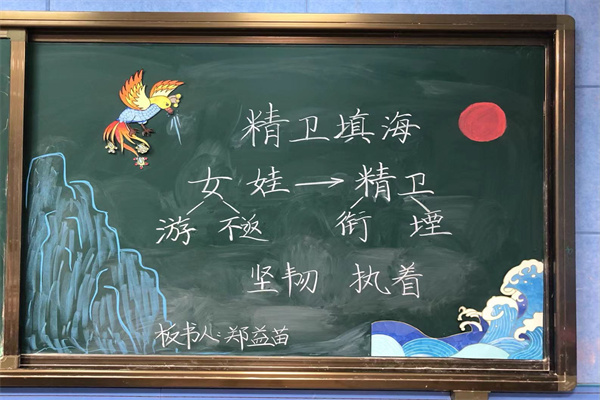 精卫填海
女娃→精卫
游 不返 衔 堙
坚韧 执着
板书人:郑益苗